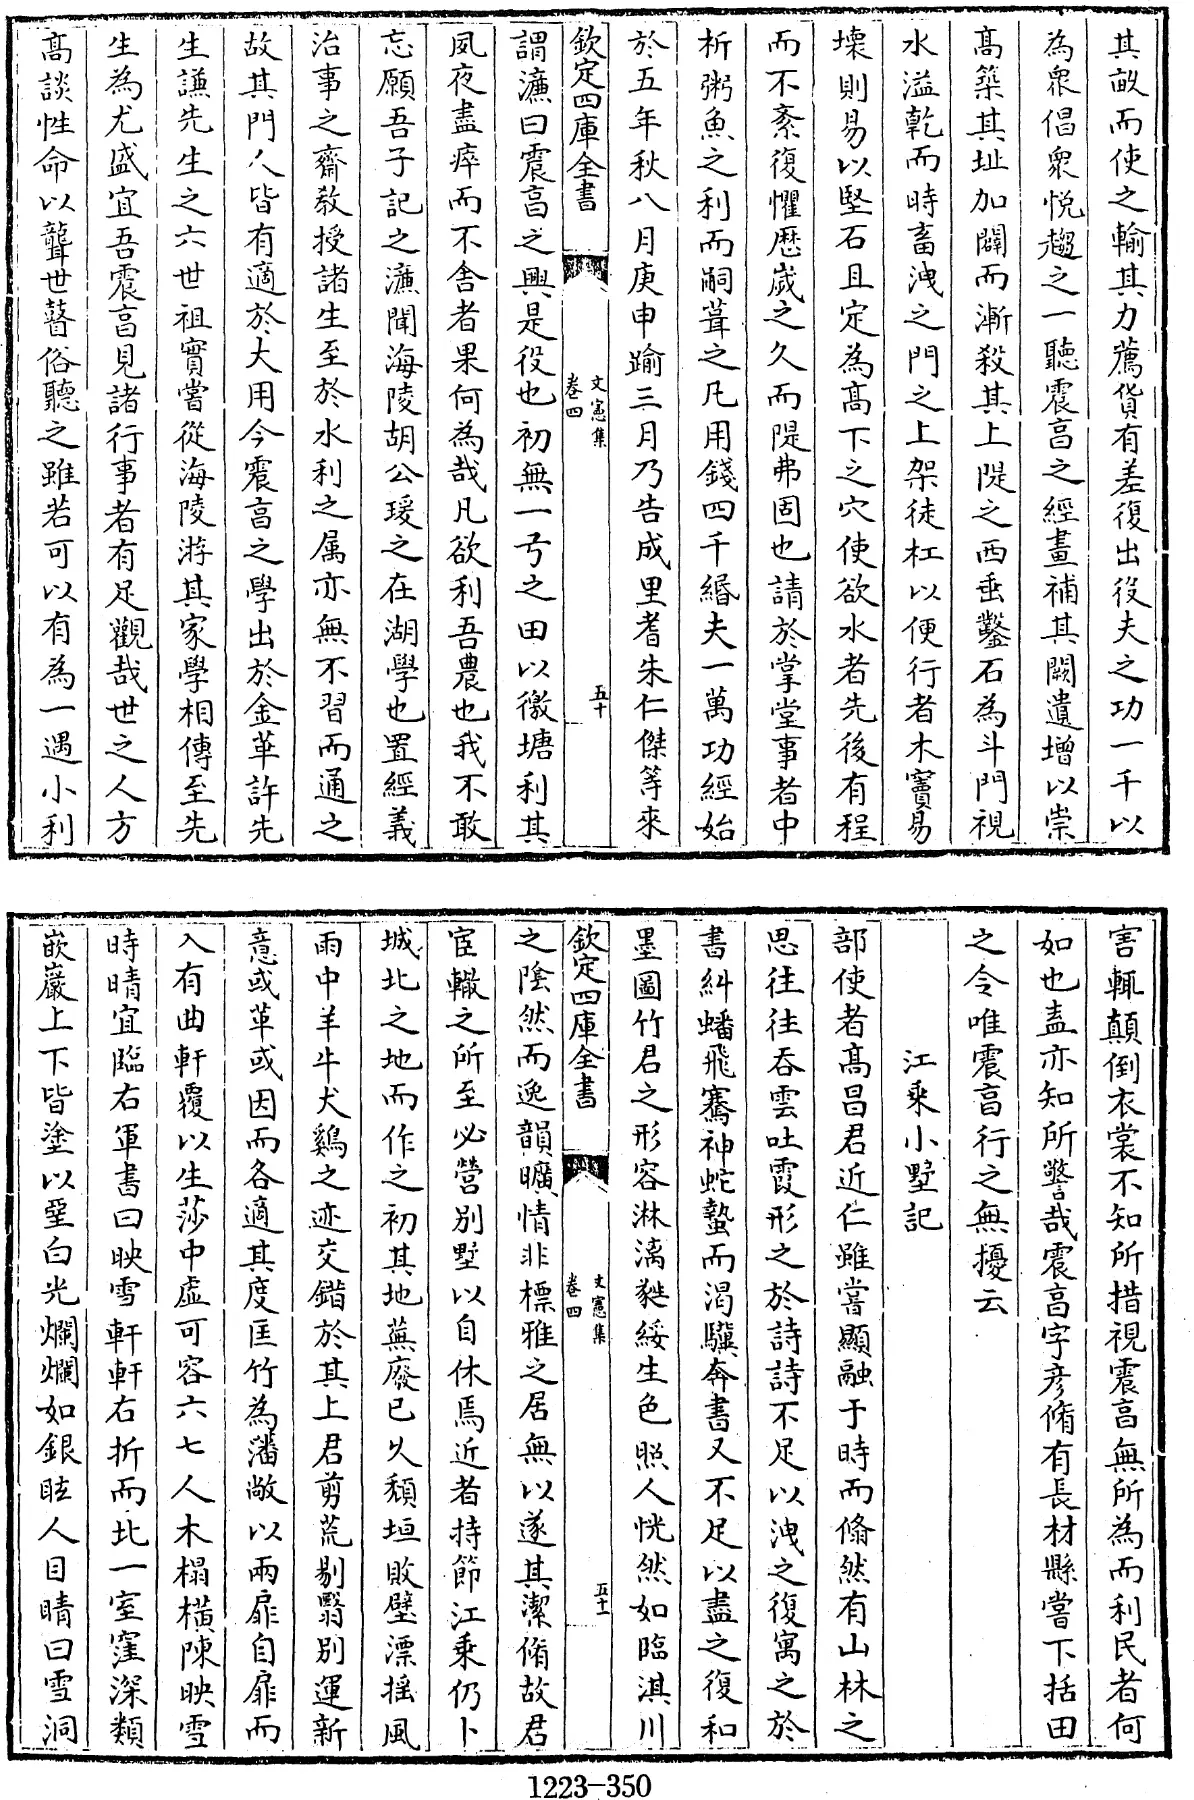 其畝而使之輸其力薦貨有差復出役夫之功一千以
為衆倡衆悦趨之一聽震亯之經畫補其闕遺增以崇
髙築其址加闢而漸殺其上隄之西垂鑿石為斗門視
水溢乾而時畜洩之門之上架徒杠以便行者木竇易
壊則易以堅石且定為髙下之穴使欲水者先後有程
而不紊復懼歴嵗之久而隄弗固也請於掌堂事者中
析粥魚之利而嗣葺之凡用錢四千緡夫一萬功經始
於五年秋八月庚申踰三月乃告成里耆朱仁傑等來
欽定四庫全書
文憲集
卷四
五十
謂濂曰震亯之興是役也初無一弓之田以徼塘利其
夙夜盡瘁而不舍者果何為哉凡欲利吾農也我不敢
忘願吾子記之濂聞海陵胡公瑗之在湖學也置經義
治事之齋教授諸生至於水利之属亦無不習而通之
故其門人皆有適於大用今震亯之學出於金華許先
生謙先生之六世祖實嘗從海陵游其家學相傳至先
生為尤盛宜吾震亯見諸行事者有足觀哉世之人方
髙談性命以聾世瞽俗聽之雖若可以有為一遇小利
害輒顛倒衣裳不知所措視震亯無所為而利民者何
如也盍亦知所警哉震亯字彦脩有長材縣嘗下括田
之令唯震亯行之無擾云
江乗小墅記
部使者髙昌君近仁雖嘗顯融于時而翛然有山林之
思往往吞雲吐霞形之於詩詩不足以洩之復寓之於
書糾蟠飛騫神蛇蟄而渴驥奔書又不足以盡之復和
墨圖竹君之形容淋漓㲯綏生色照人恍然如臨淇川
欽定四庫全書
文憲集
卷四
五十一
之陰然而逸韻曠情非標雅之居無以遂其潔脩故君
宦轍之所至必營别墅以自休焉近者持節江乗仍卜
城北之地而作之初其地蕪廢已久頽垣敗壁漂揺風
雨中羊牛犬鷄之迹交錯於其上君剪荒剔翳别運新
意或革或因而各適其度匡竹為藩敞以兩扉自扉而
入有曲軒覆以生莎中虚可容六七人木榻横陳映雪
時晴宜臨右軍書曰映雪軒軒右折而北一室窪深類
嵌巖上下皆塗以堊白光爛爛如銀眩人目睛曰雪洞
1223-350